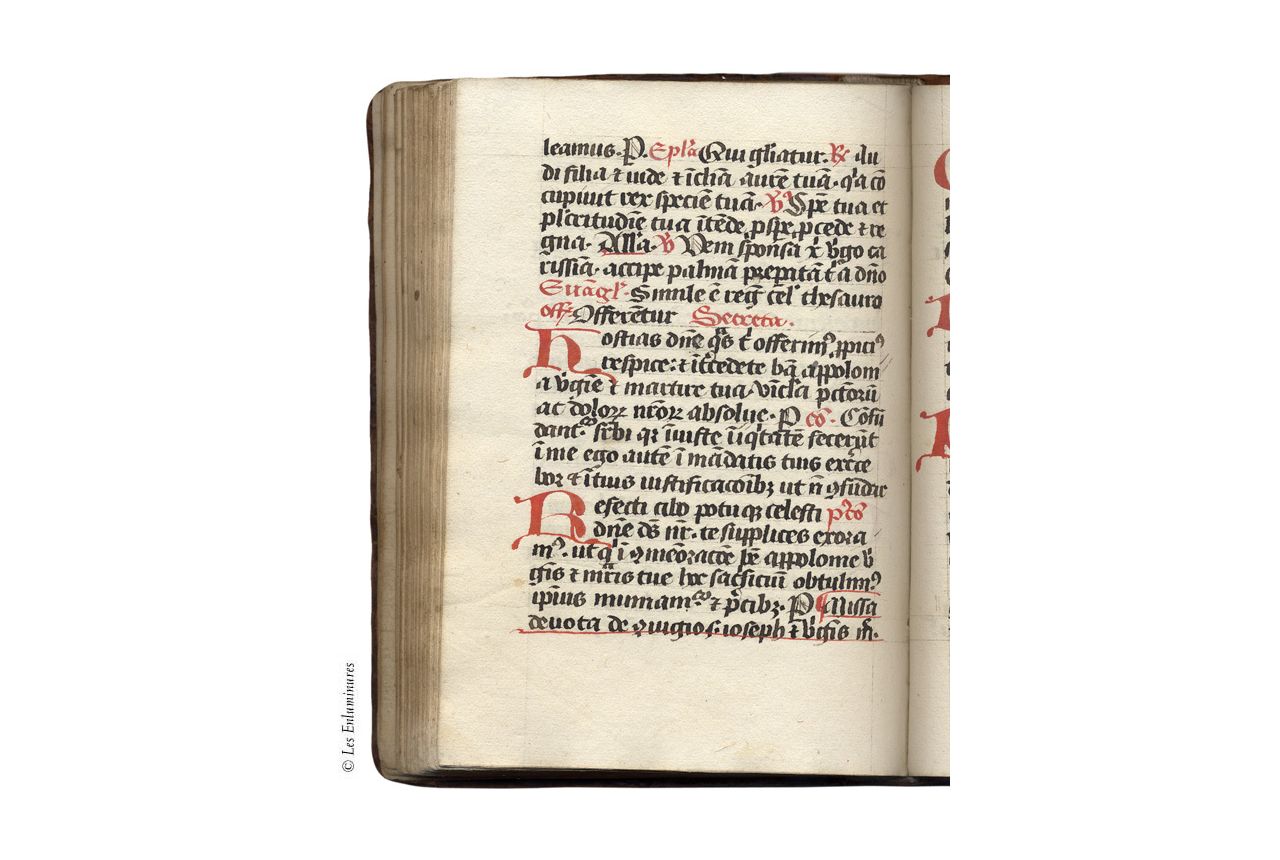 leamus. P. Ep̅la Qui gl̅iatur. R̷ Au
di filia ⁊ uide ⁊ i̅cli̅a aure̅ tua̅. q̅a co̅
cupiuit rex specie̅ tua̅. V̷ Spe̅ tua et
pl̅critudi̅e tua i̅te̅de ꝓspe̅ ꝓcede ⁊ re
gna. All̅a. V̷ Veni spo̅nsa xp̅i v̅go ca
rissi̅a. accipe palma̅ prepara̅ t̅ a dn̅o
Eua̅gl̅. Simile e̅ reg̅ cel̅ thesauro
off̅. Offere̅tur Secreta.
Hostias dn̅e q̅s t̅ offerim⁹ ꝓpici⁹
respice: ⁊ i̅t̅cede̅te b̅a̅ appolom
a v̅gi̅e ⁊ martire tua. vi̅cl̅a pct̅oru̅
ac doloꝝ nr̅oꝝ absolue. P co̅. Co̅fu
da̅nt̅ sup̅bi qꝛ i̅iuste i̅iq̅tate̅ fecer̅ut
i̅ me ego aute̅ i̅ ma̅datis tuis ex̅rce
bor ⁊ i̅ tuis iustificaco̅ibꝫ ut n̅ ꝯfu̅dar
Refecti cibo potuqꝫ celesti p̅co̅
dn̅e ds̅ nr̅. te supplices exora
m⁹. ut q̅ i̅ ꝯme̅orac̅oe be̅ appolome v̅
gi̅s ⁊ mr̅is tue hoc sac̅ficiu̅ obtulim⁹
ip̅ius muniam̅ ⁊ p̅cibꝫ. P Missa
deuota de ioseph ⁊ v̅gi̅s m̅.
© Les Enluminures